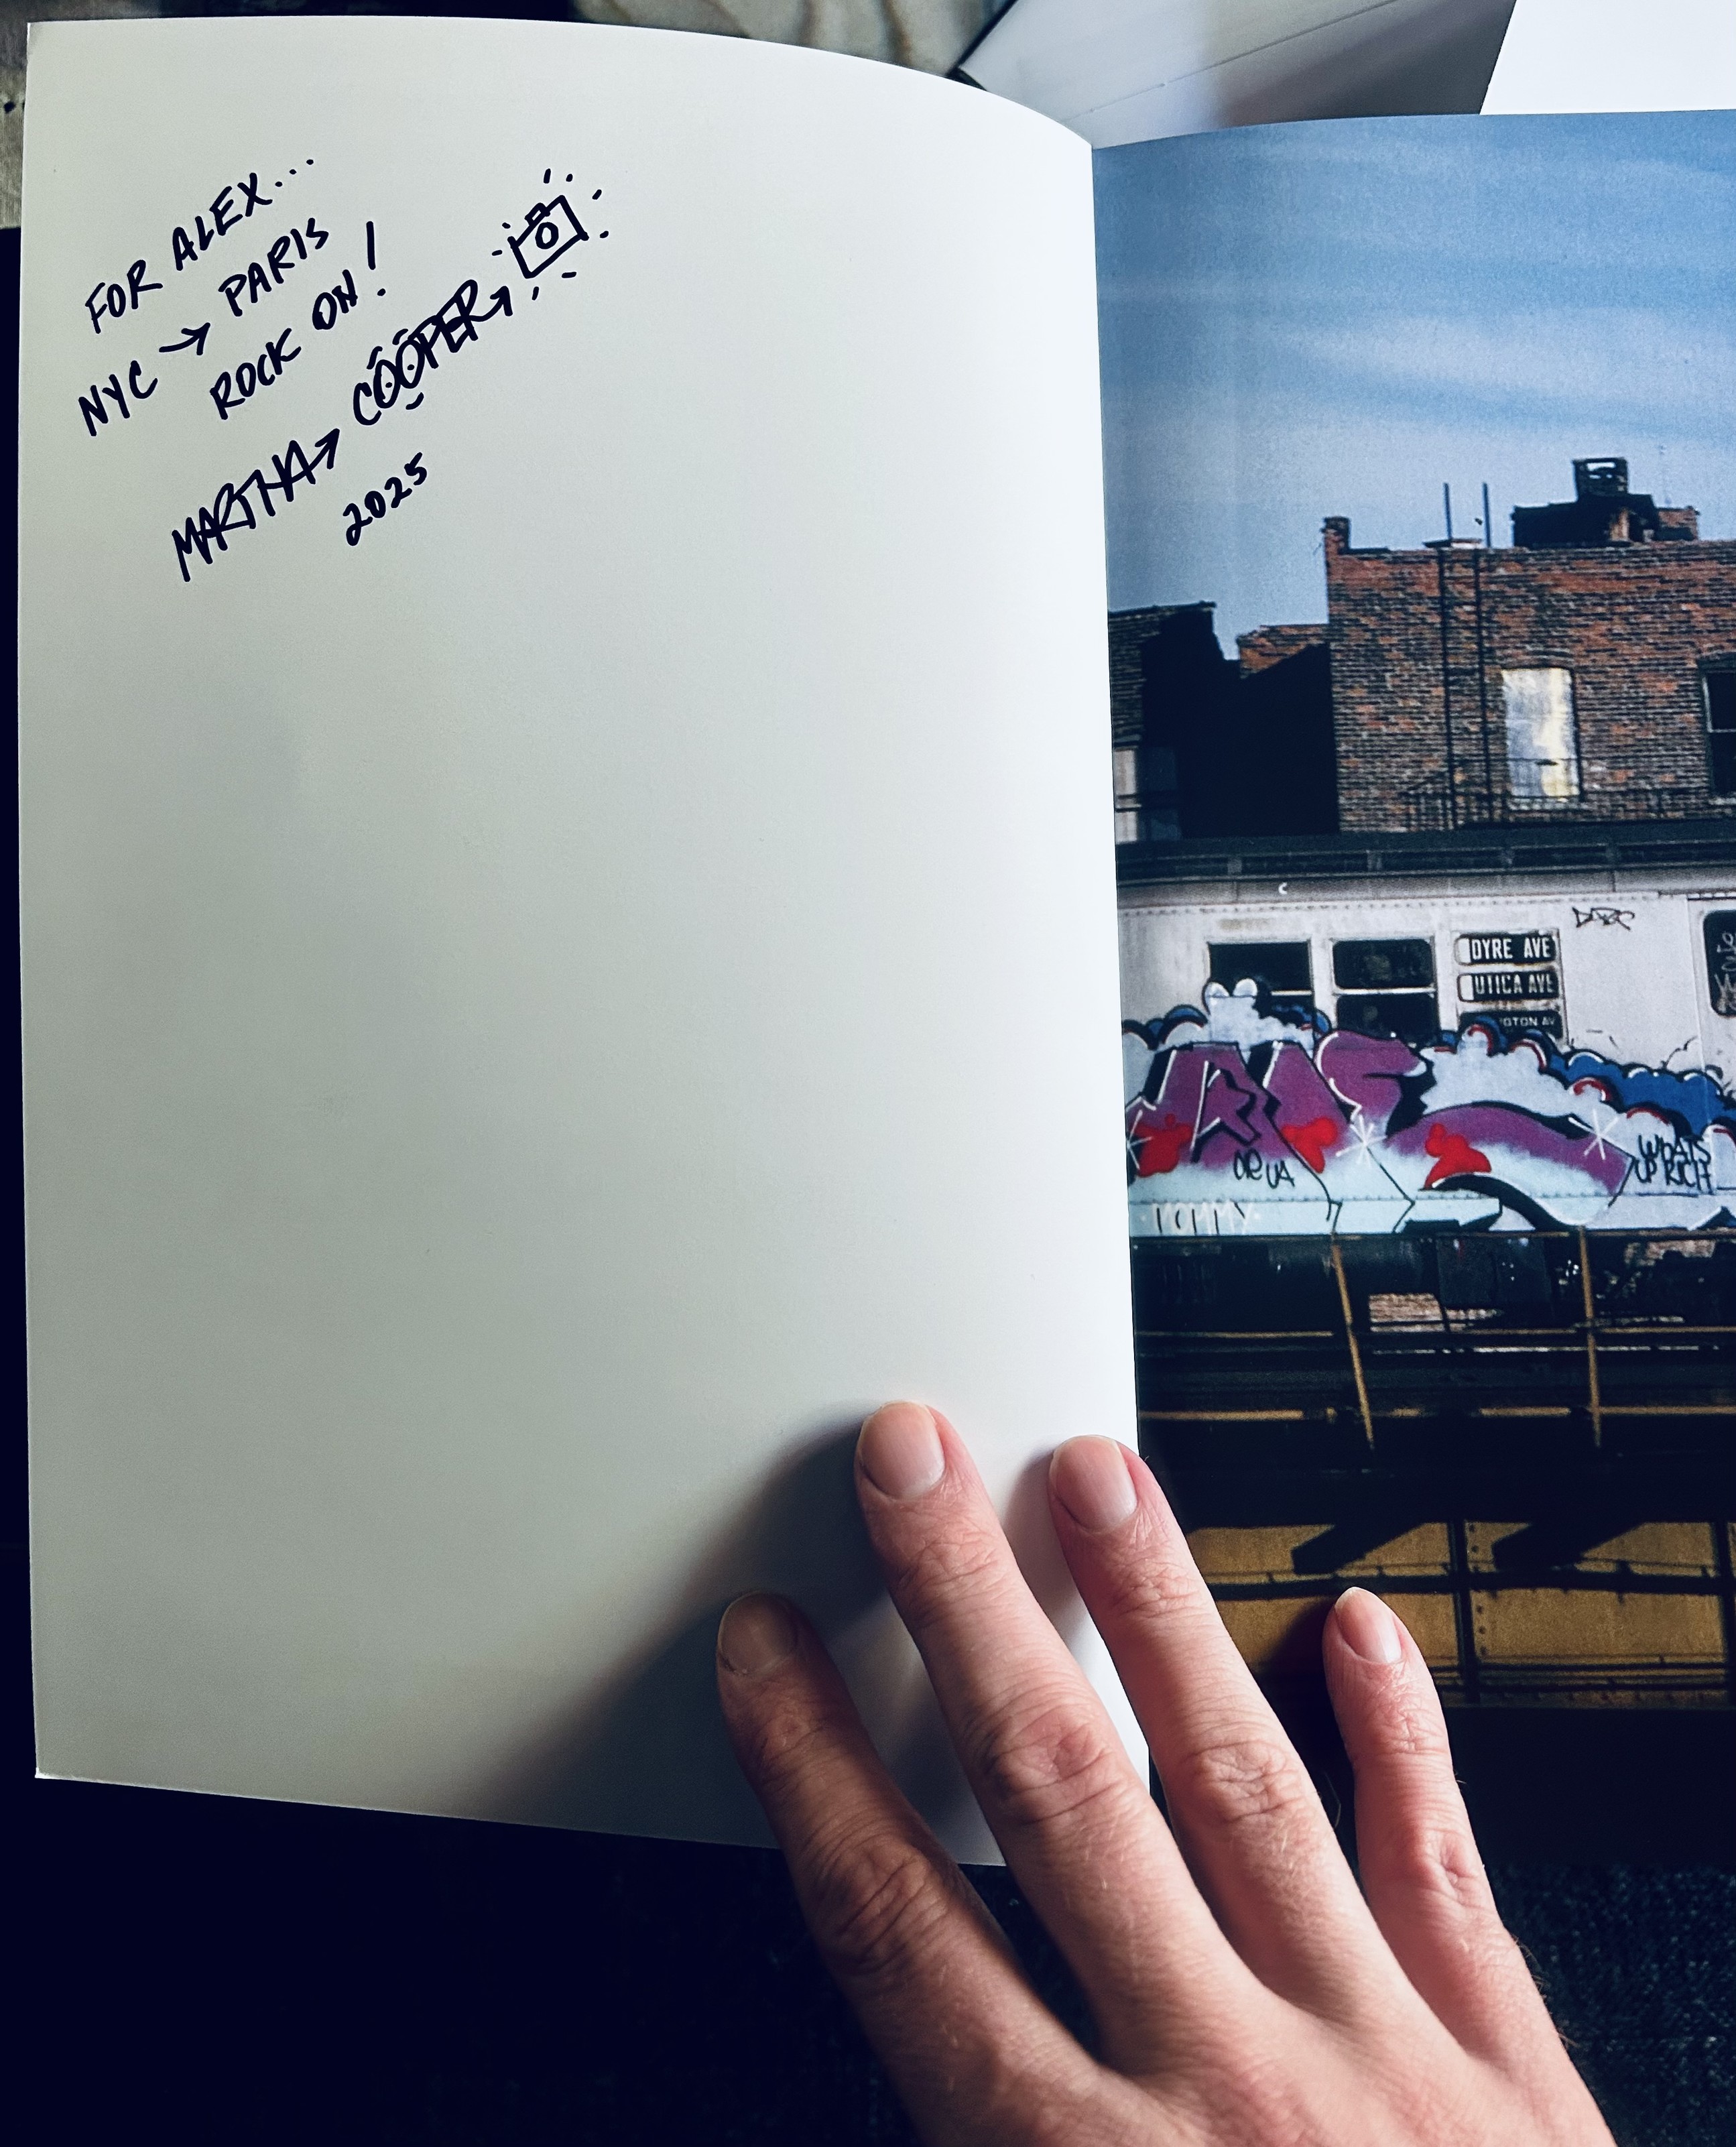 FOR ALEX...
NYC → PARIS
ROCK ON!
MARTHA → COOPER →
2025
DYRE AVE
UTICA AVE
WHATS
UP RICH
MOMMY